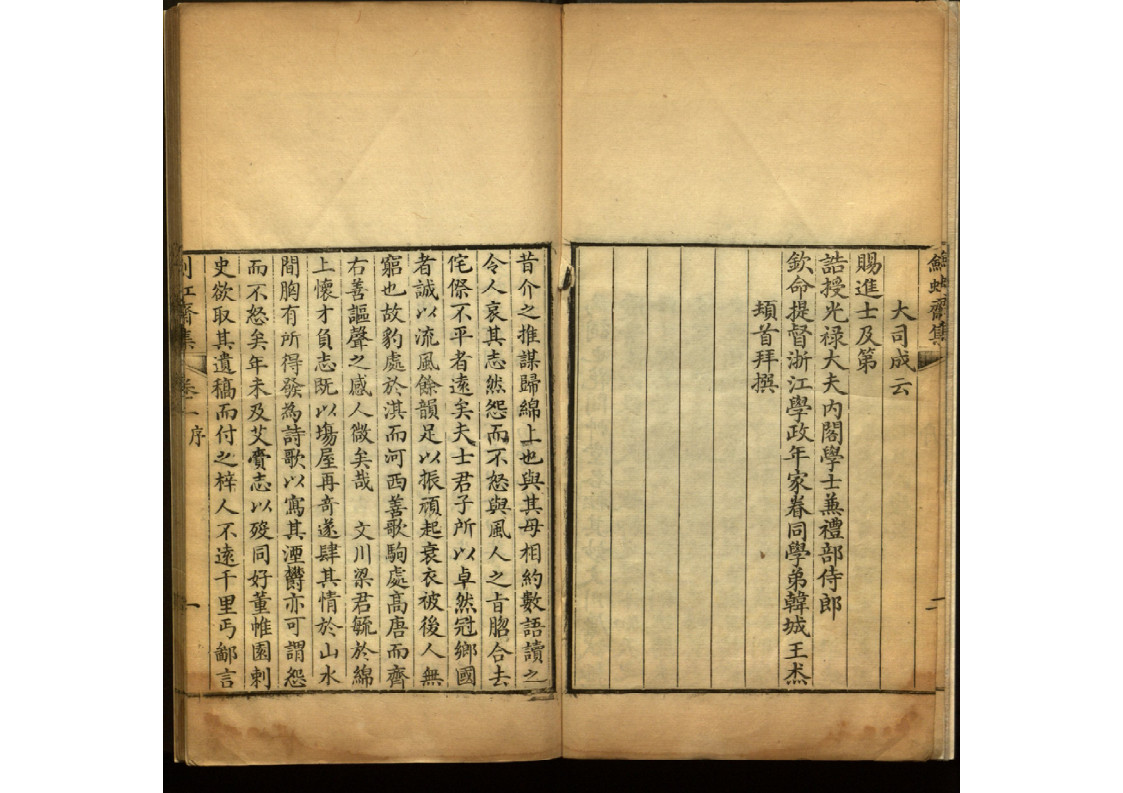 大司成云
賜進士及第
誥授光禄大夫內閣學士兼禮部侍郎
欽命提督浙江學政年家眷同學弟韓城王杰
頓首拜撰
二
昔介之推謀歸綿上也與其母相約數語讀之
令人哀其志然怨而不怒與風人之旨脗合去
侘傺不平者遠矣夫士君子所以卓然冠鄉國
者誠以流風餘韻足以振頑起衰衣被後人無
窮也故豹處於淇而河西善歌駒處高唐而齊
右善謳聲之感人微矣哉　文川梁君毓於綿
上懷才負志既以塲屋再奇遂肆其情於山水
間胸有所得發為詩歌以寫其湮欝亦可謂怨
而不怒矣年未及艾賫志以殁同好董帷園刺
史欲取其遺稿而付之梓人不遠千里丐鄙言
齋集
卷一序
一